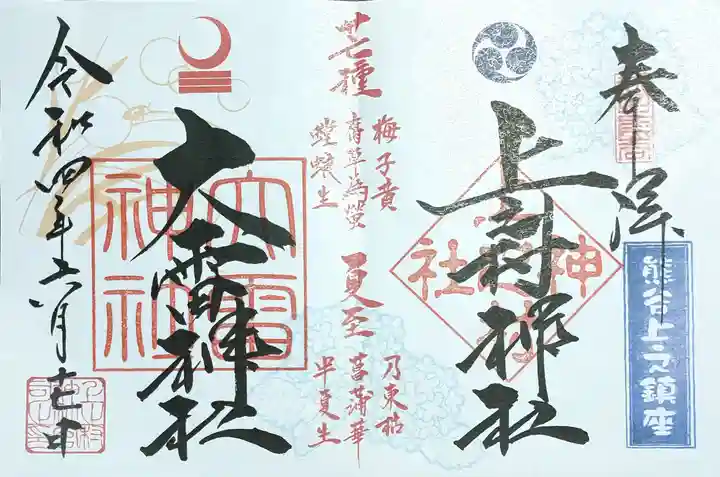 奉拝
熊谷上之鎮座
上之村神社
神社
芒種
梅子黄
腐草為螢
螳螂生
夏至
乃東枯
菖蒲華
半夏生
大雷神社
大雷
神社
令和四年六月十七日